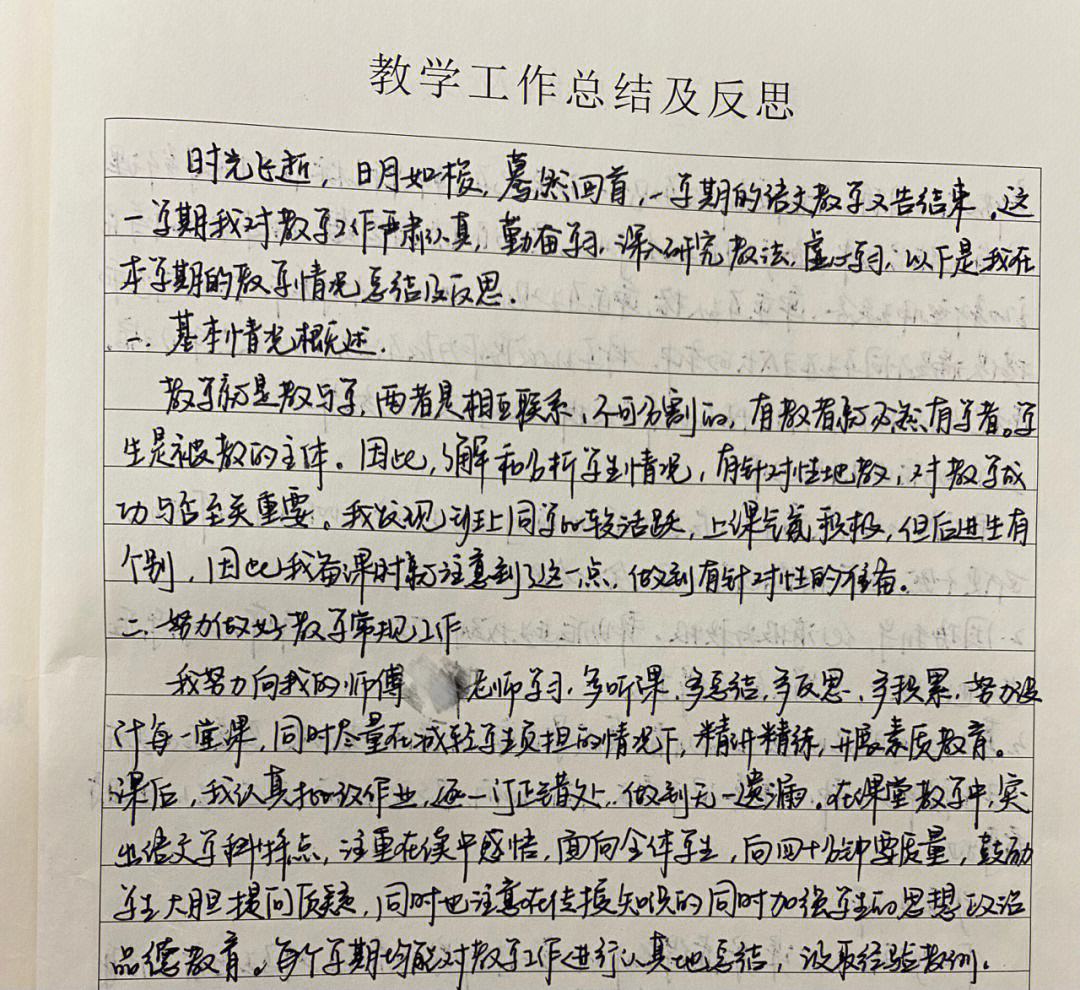 教学工作总结及反思
时光飞逝，日月如梭，蓦然回首，一学期的语文教学又告结束，这
一学期我对教学工作严肃认真，勤奋学习，深入研究教法，虚心学习，以下是我在
本学期的教学情况总结及反思.
一. 基本情况概述.
教学就是教与学，两者是相互联系，不可分割的，有教者就必然有学者。学
生是被教的主体。因此，了解和分析学生情况，有针对性地教，对教学成
功与否至关重要。我发现班上同学比较活跃，上课气氛积极，但后进生有
个别，因此我备课时就注意到了这一点，做到有针对性的准备。
二. 努力做好教学常规工作
我努力向我的师傅 老师学习，多听课，多总结，多反思，多积累，努力设
计每一堂课，同时尽量在减轻学生负担的情况下，精讲精练，开展素质教育。
课后，我认真批改作业，逐一订正错处，做到无一遗漏。在课堂教学中，突
出语文学科特点，注重在读中感悟，面向全体学生，向四十分钟要质量，鼓励
学生大胆提问质疑，同时也注意在传授知识的同时加强学生的思想政治
品德教育。每个学期均能对教学工作进行认真地总结，汲取经验教训.